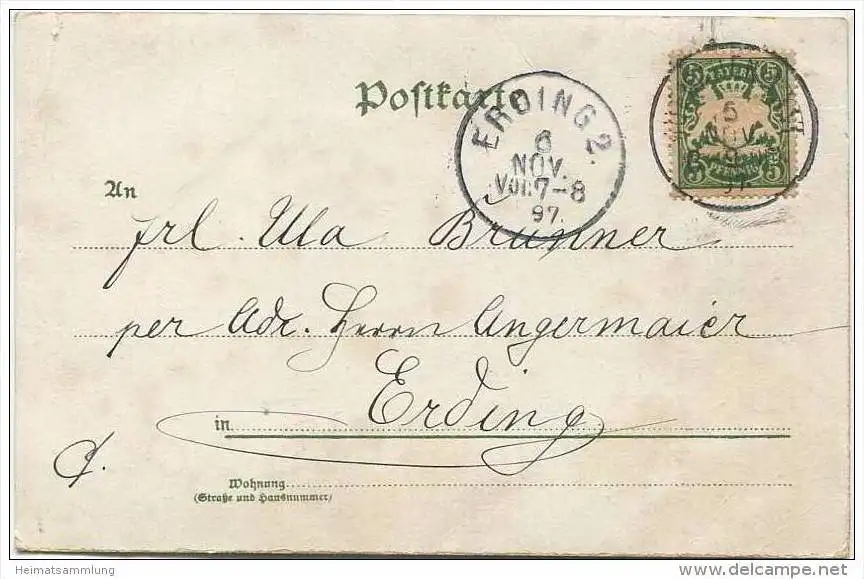 Postkarte
ERDING 2.
6
NOV.
Vor. 7-8
97.
5 BAYERN 5
5 PFENNIG 5
5
NOV
97
An
Frl. Ula Brunner
per Adr. Herrn Angermaier
in Erding
Wohnung
(Straße und Hausnummer)
Heimatsammlung
delcampe.net